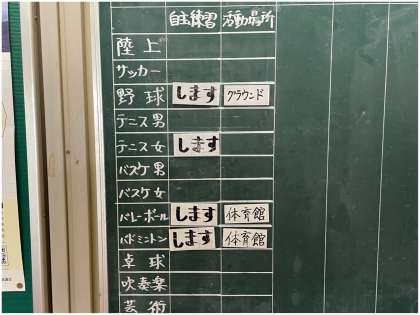 自主練習 活動場所
陸上
サッカー
野球 します グラウンド
テニス男
テニス女 します
バスケ男
バスケ女
バレーボール します 体育館
バドミントン します 体育館
卓球
吹奏楽
芸術